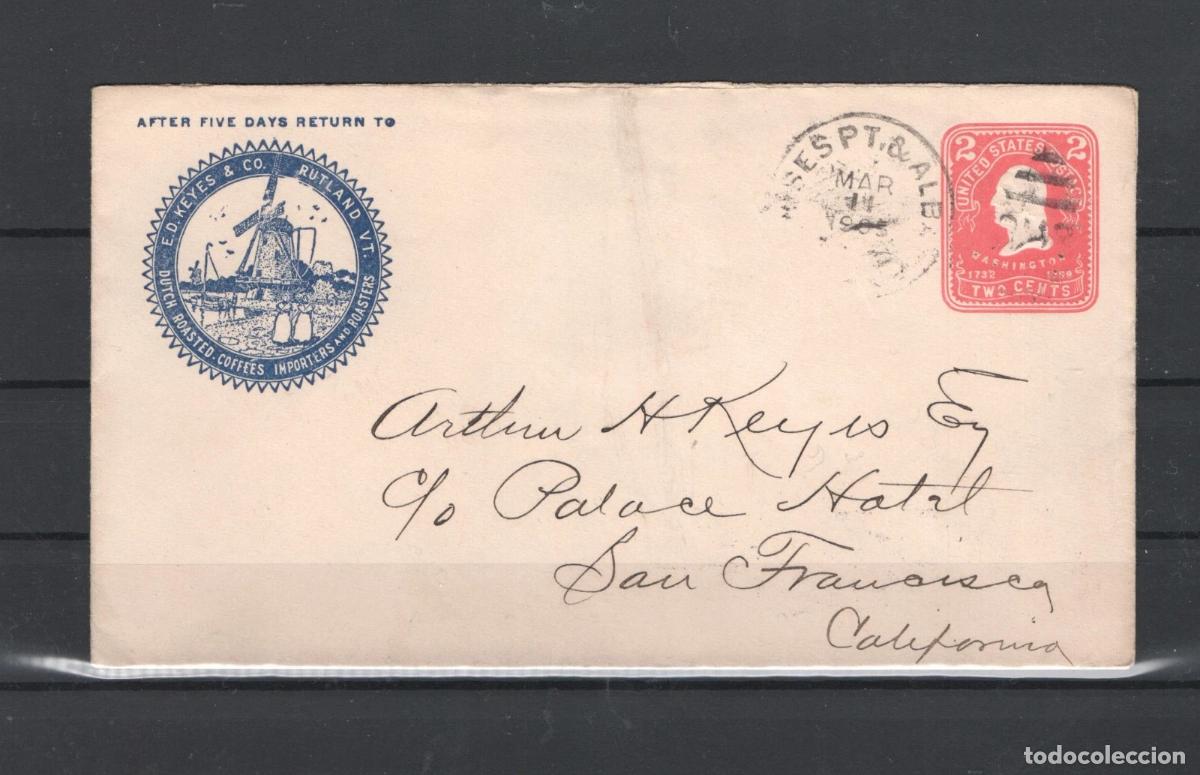 AFTER FIVE DAYS RETURN TO
E.D. KEYES & CO. RUTLAND VT.
DUTCH ROASTED COFFEES IMPORTERS AND ROASTERS
SES PT. & ALB
MAR
11
2 2
UNITED STATES POSTAGE
WASHINGTON
1732 1799
TWO CENTS
Arthur H Keyes Esq
c/o Palace Hotel
San Francisco
California
todocoleccion